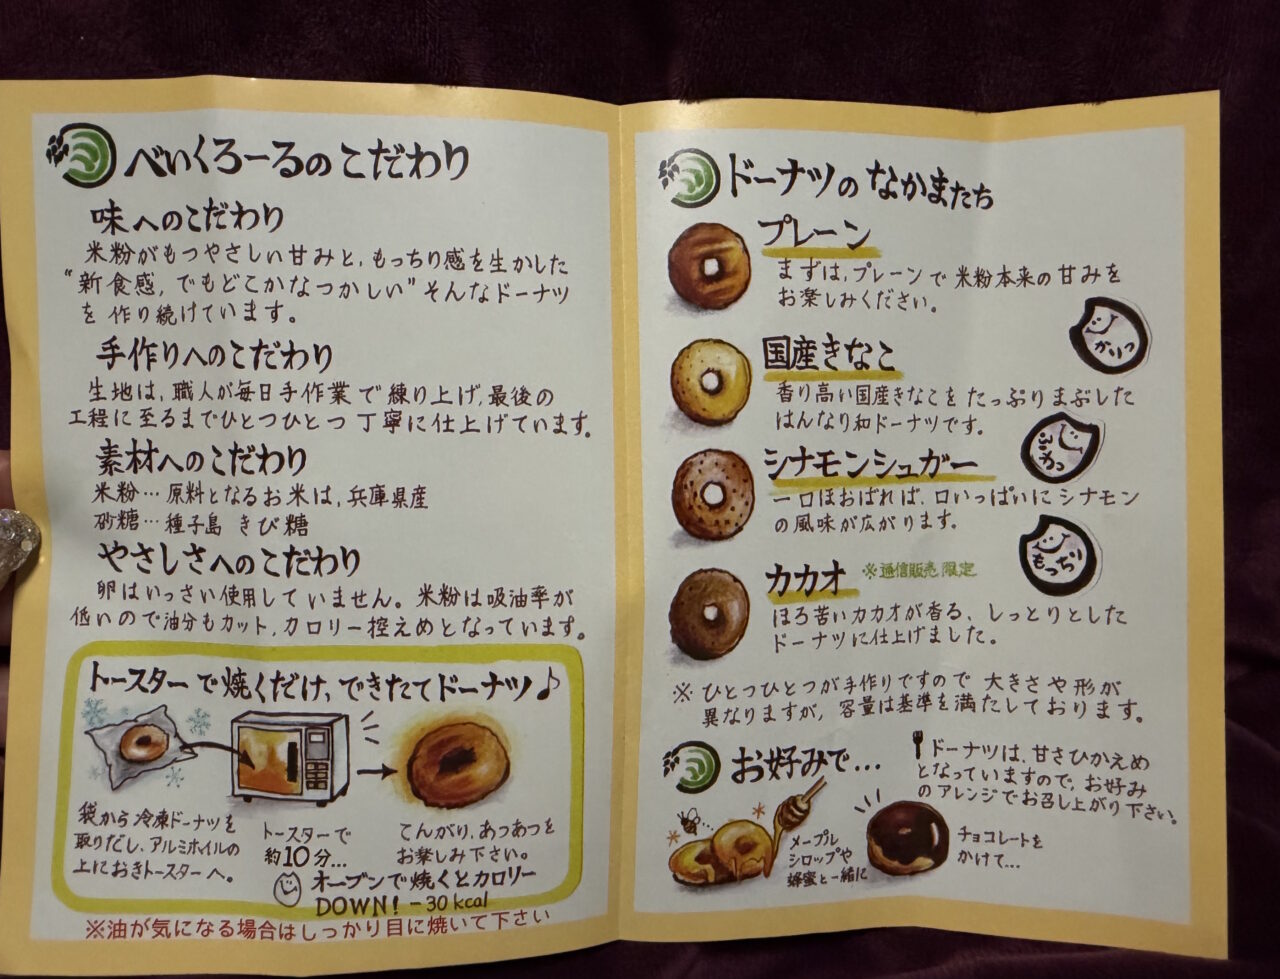 べいくろーるのこだわり
味へのこだわり
米粉がもつやさしい甘みと、もっちり感を生かした
"新食感、でもどこかなつかしい"そんなドーナツ
を作り続けています。
手作りへのこだわり
生地は、職人が毎日手作業で練り上げ、最後の
工程に至るまでひとつひとつ丁寧に仕上げています。
素材へのこだわり
米粉…原料となるお米は、兵庫県産
砂糖…種子島きび糖
やさしさへのこだわり
卵はいっさい使用していません。米粉は吸油率が
低いので油分もカット、カロリー控えめとなっています。
トースターで焼くだけ、できたてドーナツ♪
袋から冷凍ドーナツを
取りだし、アルミホイルの
上におきトースターへ。
トースターで
約10分…
こんがり、あつあつを
お楽しみ下さい。
オーブンで焼くとカロリー
DOWN! -30kcal
※油が気になる場合はしっかり目に焼いて下さい
ドーナツのなかまたち
プレーン
まずは、プレーンで米粉本来の甘みを
お楽しみください。
かりっ
国産きなこ
香り高い国産きなこをたっぷりまぶした
はんなり和ドーナツです。
ふわっ
シナモンシュガー
一口ほおばれば、口いっぱいにシナモン
の風味が広がります。
もっちり
カカオ ※通信販売限定
ほろ苦いカカオが香る、しっとりとした
ドーナツに仕上げました。
※ひとつひとつが手作りですので大きさや形が
異なりますが、容量は基準を満たしております。
お好みで…
ドーナツは、甘さひかえめ
となっていますので、お好み
のアレンジでお召し上がり下さい。
メープル
シロップや
蜂蜜と一緒に
チョコレートを
かけて…